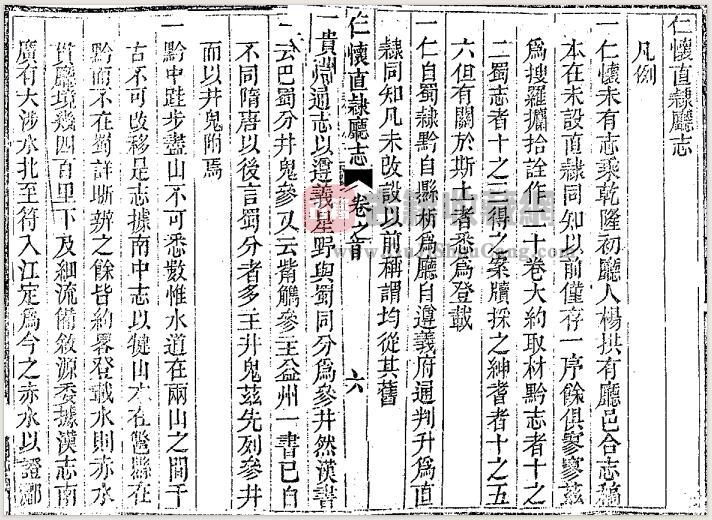 仁懷直隸廳志
凡例
一仁懷未有志乘乾隆初廳人楊拱有廳邑合志稿
本在未設直隸同知以前僅存一序餘俱寥寥茲
為搜羅攟拾詮作二十卷大約取材黔志者十之
二蜀志者十之三得之案牘採之紳耆者十之五
六但有關於斯土者悉為登載
一仁自蜀隸黔自縣析為廳自遵義府通判升為直
隸同知凡未改設以前稱謂均從其舊
仁懷直隸廳志 卷之首 六
一貴州通志以遵義星野與蜀同分為參井然漢書
云巴蜀分井鬼參又云觜觿參主益州一書已自
不同隋唐以後言蜀分者多主井鬼茲先列參井
而以井鬼附焉
一黔中跬步盡山不可悉數惟水道在兩山之間千
古不可改移是志據南中志以犍山本在鄨縣在
黔而不在蜀詳晰辨之餘皆約畧登載水則赤水
貫廳境幾四百里下及細流備敘源委據漢志南
廣有大涉水北至符入江定為今之赤水以證酈